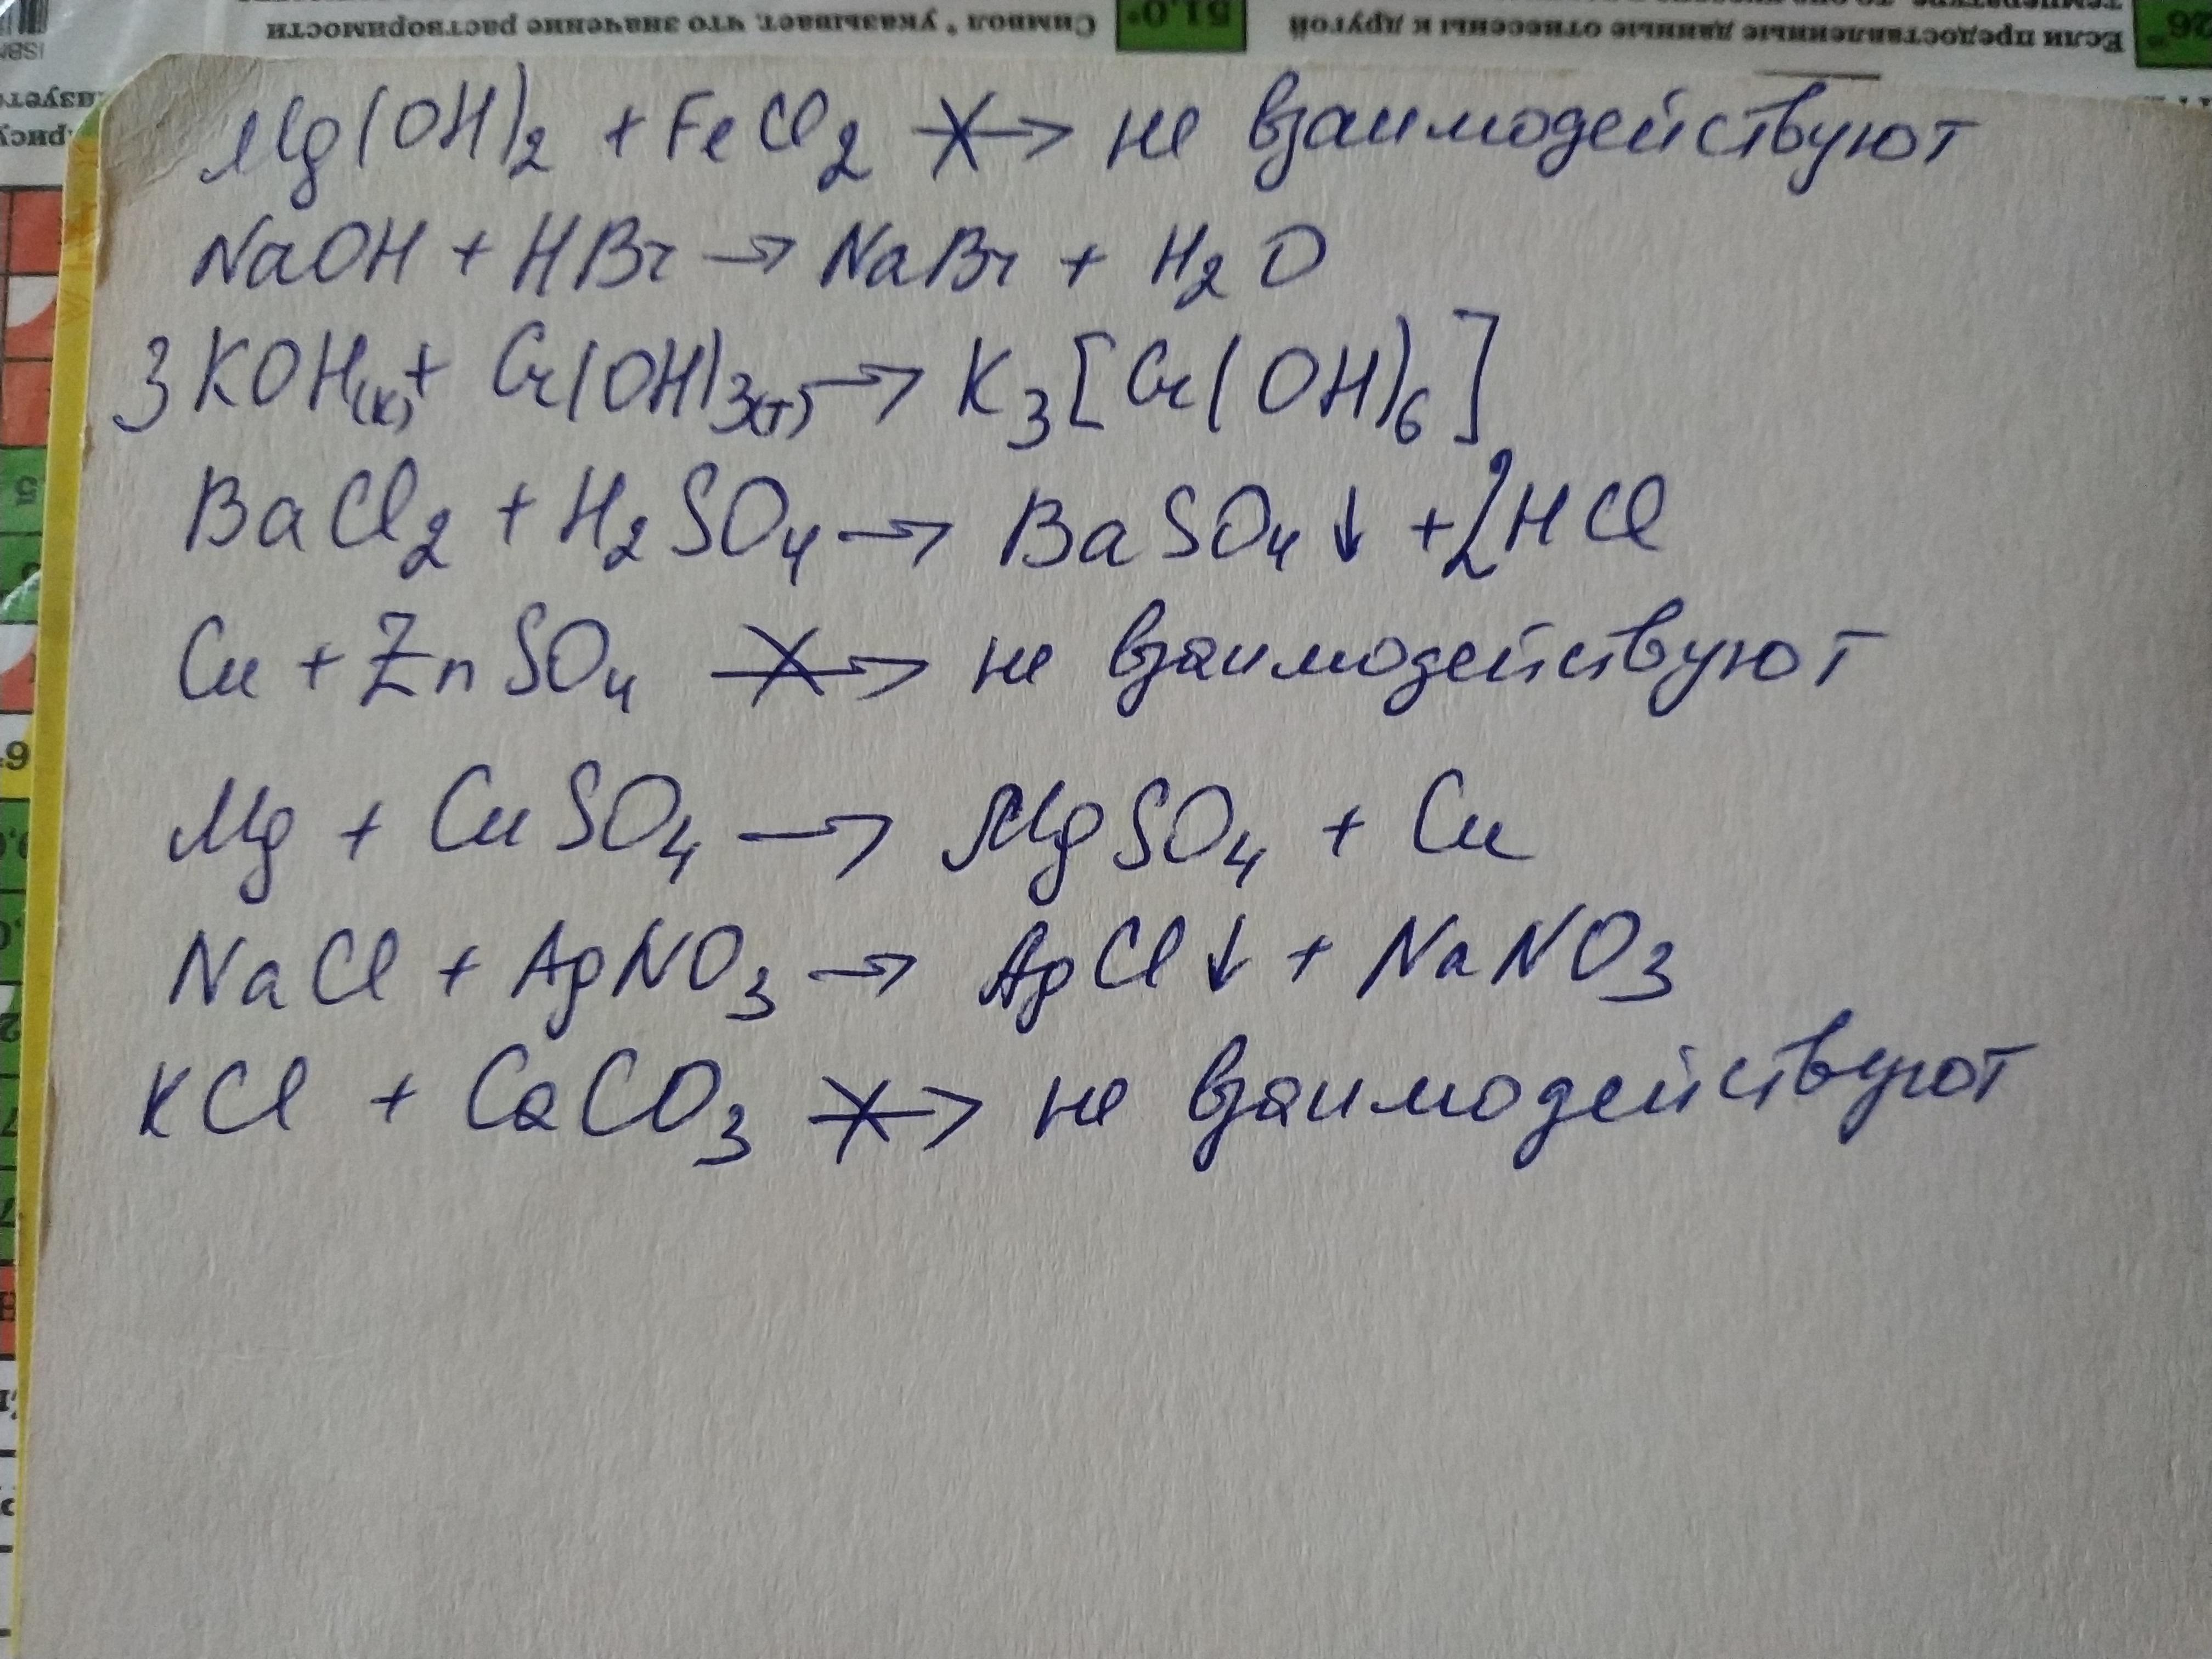 Если предоставленные данные отнесены к другой
51,0*
Символ * указывает, что значение растворимости
ISBN
Mg(OH)2 + FeCl2 ↛ не взаимодействуют
NaOH + HBr → NaBr + H2O
3KOH(к) + Cr(OH)3(т) → K3[Cr(OH)6]
BaCl2 + H2SO4 → BaSO4↓ + 2HCl
Cu + ZnSO4 ↛ не взаимодействуют
Mg + CuSO4 → MgSO4 + Cu
NaCl + AgNO3 → AgCl↓ + NaNO3
KCl + CaCO3 ↛ не взаимодействуют